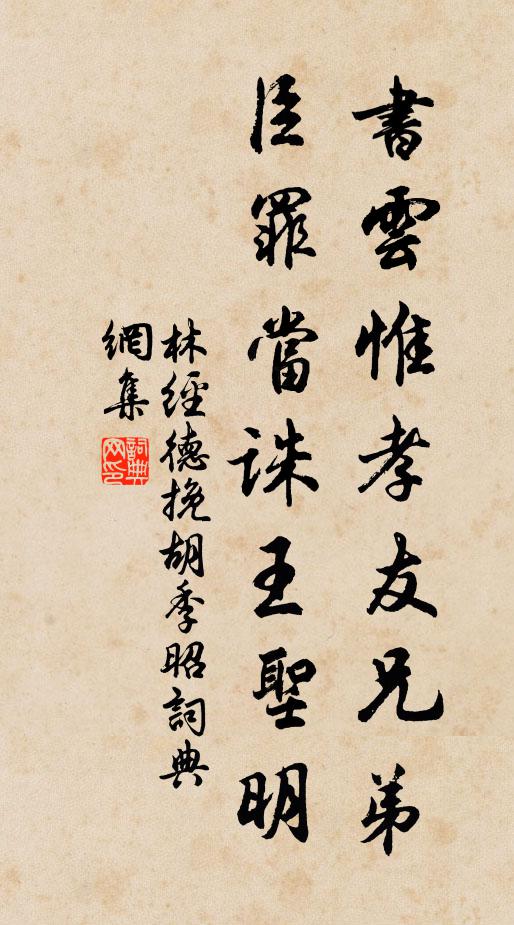 書雲惟孝友兄弟
臣罪當誅王聖明
林經德挽胡季昭詞典
網集
詞典網印